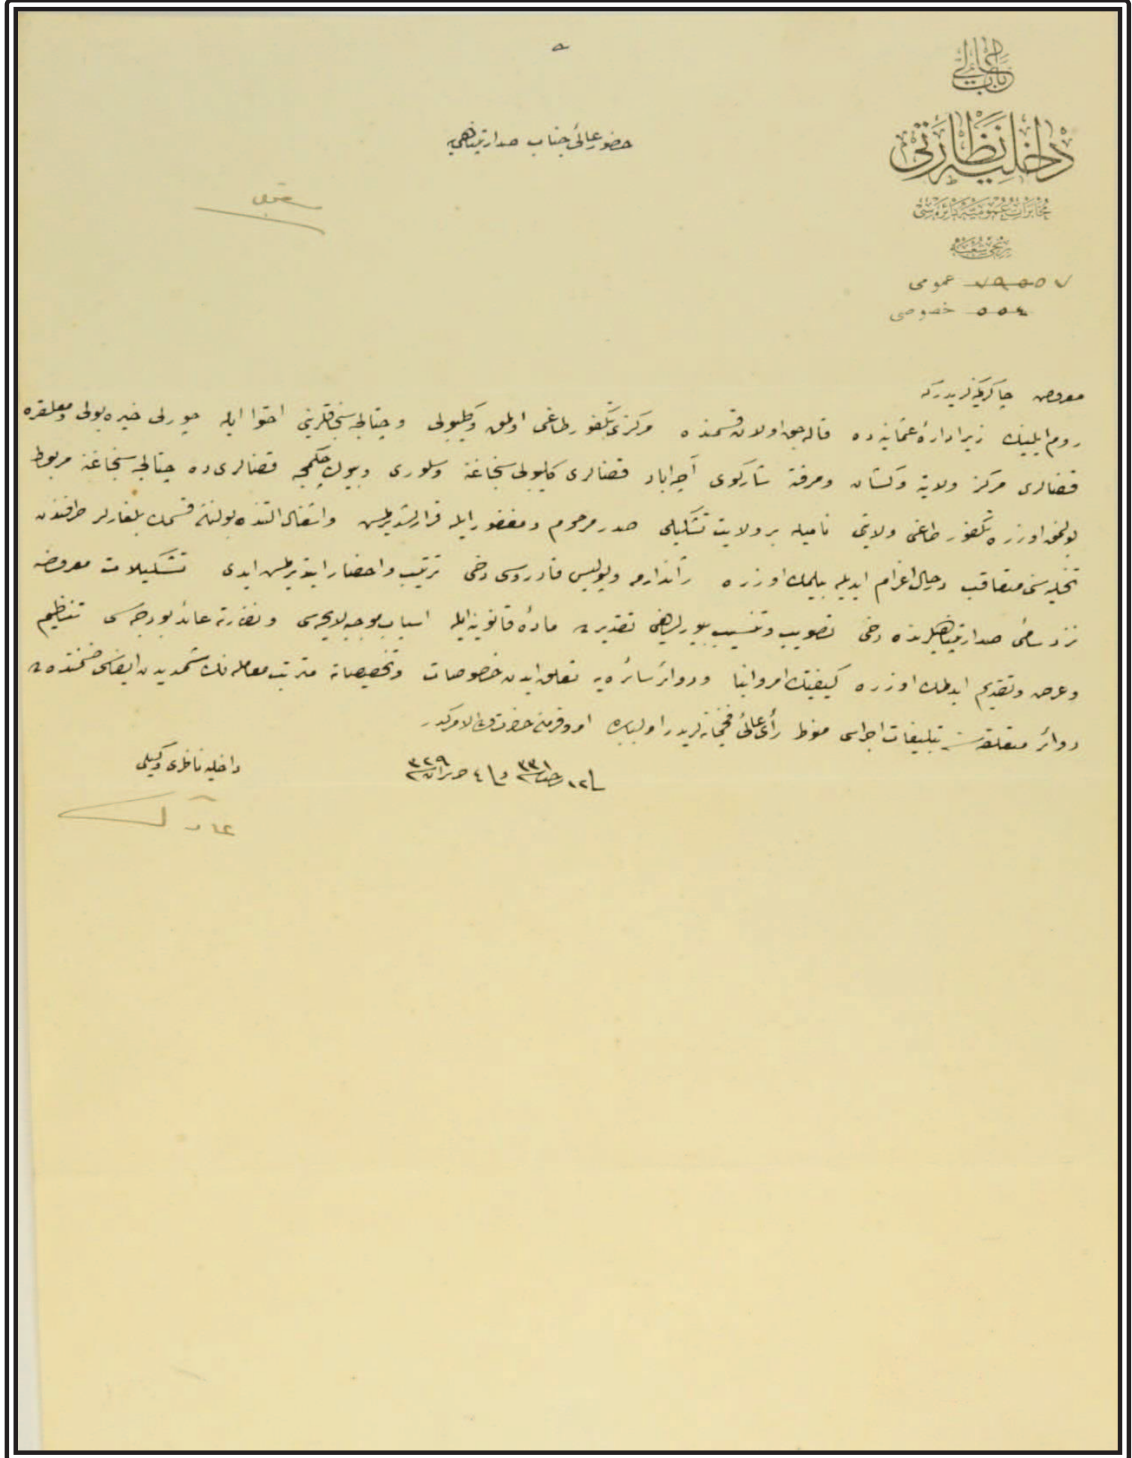 باب عالی
داخلیه نظارتی
مخابرات عمومیه دائره‌سی
عمومی
خصوصی ٥٥٤
حضور عالئ جناب صدارتپناهی‌یه
معروض چاکر کمینه‌لریدر که
روم ایلینك زیر ادارۀ عثمانیده قاله‌جق اولان قسمنده مرکزی تکفور طاغی اولمق و کلیبولی و چتالجه سنجاقلرینی احتوا ایله چورلی خیره‌بولی و معلقره
قضالری مرکز ولایته و کشان و مرفته شارکوی اجه‌اباد قضالری کلیبولی سنجاغنه و سلوری و بیوك چکمجه قضالری ده چتالجه سنجاغنه مربوط
بولنمق اوزره تکفور طاغی ولایتی نامیله بر ولایت تشکیلی صدر مرحوم و مغفور ایله قرارلشدیرلمش و اشغال التنده بولنان قسمك بلغارلر طرفندن
تخلیه‌سنی متعاقب درحال اعزام ایدیله بیلمك اوزره ژاندارمه و پولیس قادروسی دخی ترتیب و احضار ایتدیرلمش ایدی تشکیلات معروضه
نزد سامئ صدارتپناهیلرنده دخی تصویب و تنسیب بیوریلدیغی تقدیرده مادۀ قانونیه ایله اسباب موجبه لایحه‌سی و نظارته عائد بودجه‌سی تنظیم
و عرض و تقدیم ایدلمك اوزره کیفیتك امر و انبا و دوائر سائره‌یه تعلق ایدن خصوصات و تخصیصاته مترتب معامله‌نك شمدیدن ایفاسی ضمننده
دوائر متعلقه‌سنه تبلیغات اجراسی منوط رأی عالئ فخیمانه‌لریدر اولبابده امر و فرمان حضرت من له الامرکدر
فی ١٢ رجب سنه ٣٣١ و فی ٤ حزیران سنه ٣٢٩
داخلیه ناظری وکیلی
عادل